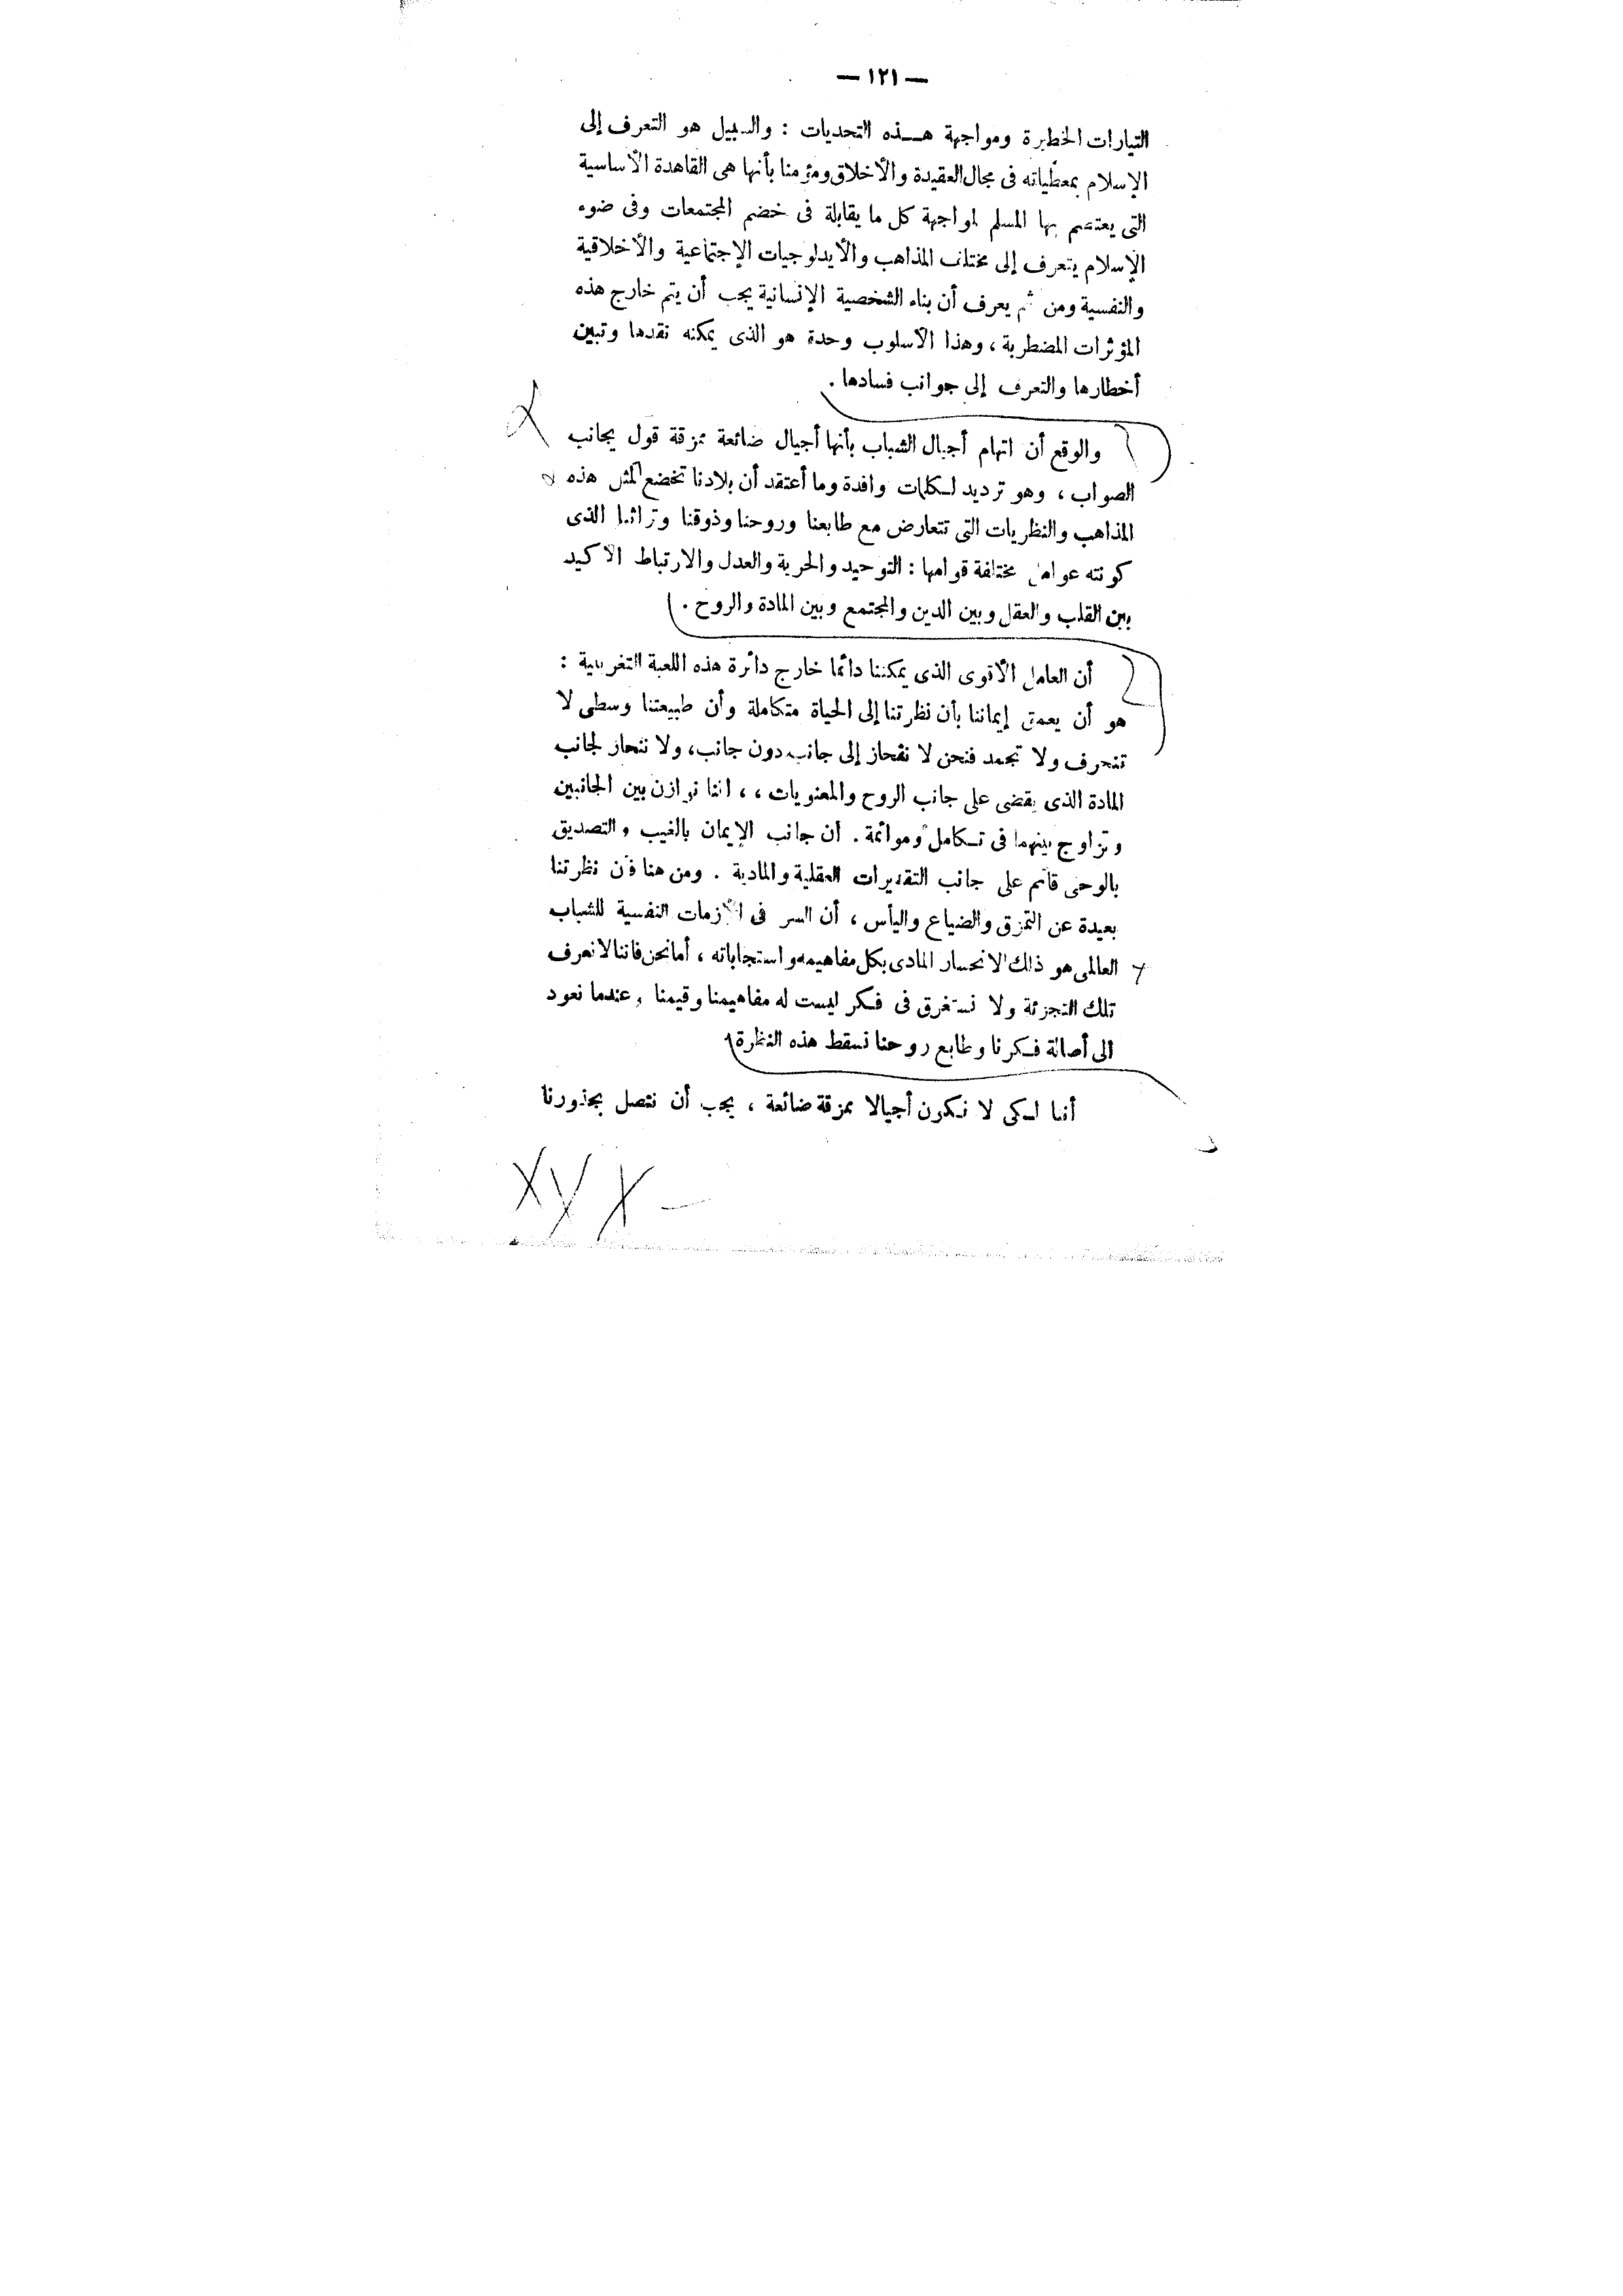 — ١٢١ —
التيارات الخطيرة ومواجهة هـــذه التحديات : والسبيل هو التعرف إلى
الإسلام بمعطياته فى مجال العقيدة والأخلاق ومؤمنا بأنها هى القاهدة الأساسية
التى يعتصم بها المسلم لمواجهة كل ما يقابلة فى خضم المجتمعات وفى ضوء
الإسلام يتعرف إلى مختلف المذاهب والأيدلوجيات الإجتماعية والأخلاقية
والنفسية ومن ثم يعرف أن بناء الشخصية الإنسانية يجب أن يتم خارج هذه
المؤثرات المضطربة ، وهذا الأسلوب وحدة هو الذى يمكنه نقدها وتبين
أخطارها والتعرف إلى جوانب فسادها .
والوقع أن اتهام أجيال الشباب بأنها أجيال ضائعة ممزقة قول يجانب
الصواب ، وهو ترديد لكلمات وافدة وما أعتقد أن بلادنا تخضع لمثل هذه
المذاهب والنظريات التى تتعارض مع طابعنا وروحنا وذوقنا وتراثنا الذى
كونته عوامل مختلفة قوامها : التوحيد والحرية والعدل والارتباط الأكيد
بين القلب والعقل وبين الدين والمجتمع وبين المادة والروح .
أن العامل الأقوى الذى يمكننا دائما خارج دائرة هذه اللعبة التغريبية :
هو أن يعمق إيماننا بأن نظرتنا إلى الحياة متكاملة وأن طبيعتنا وسطى لا
تنحرف ولا تجمد فنحن لا ننحاز إلى جانب دون جانب، ولا ننحاز لجانب
المادة الذى يقضى على جانب الروح والمعنويات ، ، اننا نوازن بين الجانبين
ونزاوج بينهما فى تكامل وموائمة . أن جانب الإيمان بالغيب والتصديق
بالوحى قائم على جانب التقديرات العقلية والمادية . ومن هنا فأن نظرتنا
بعيدة عن التمزق والضياع واليأس ، أن السر فى الأزمات النفسية للشباب
العالمى هو ذلك الانحسار المادى بكل مفاهيمه واستجاباته ، أمانحن فاننا لا نعرف
تلك التجزئة ولا نستغرق فى فكر ليست له مفاهيمنا وقيمنا وعندما نعود
الى أصالة فكرنا وطابع روحنا نسقط هذه النظرة
أننا لكى لا نكون أجيالا ممزقة ضائعة ، يجب أن نتصل بجذورنا